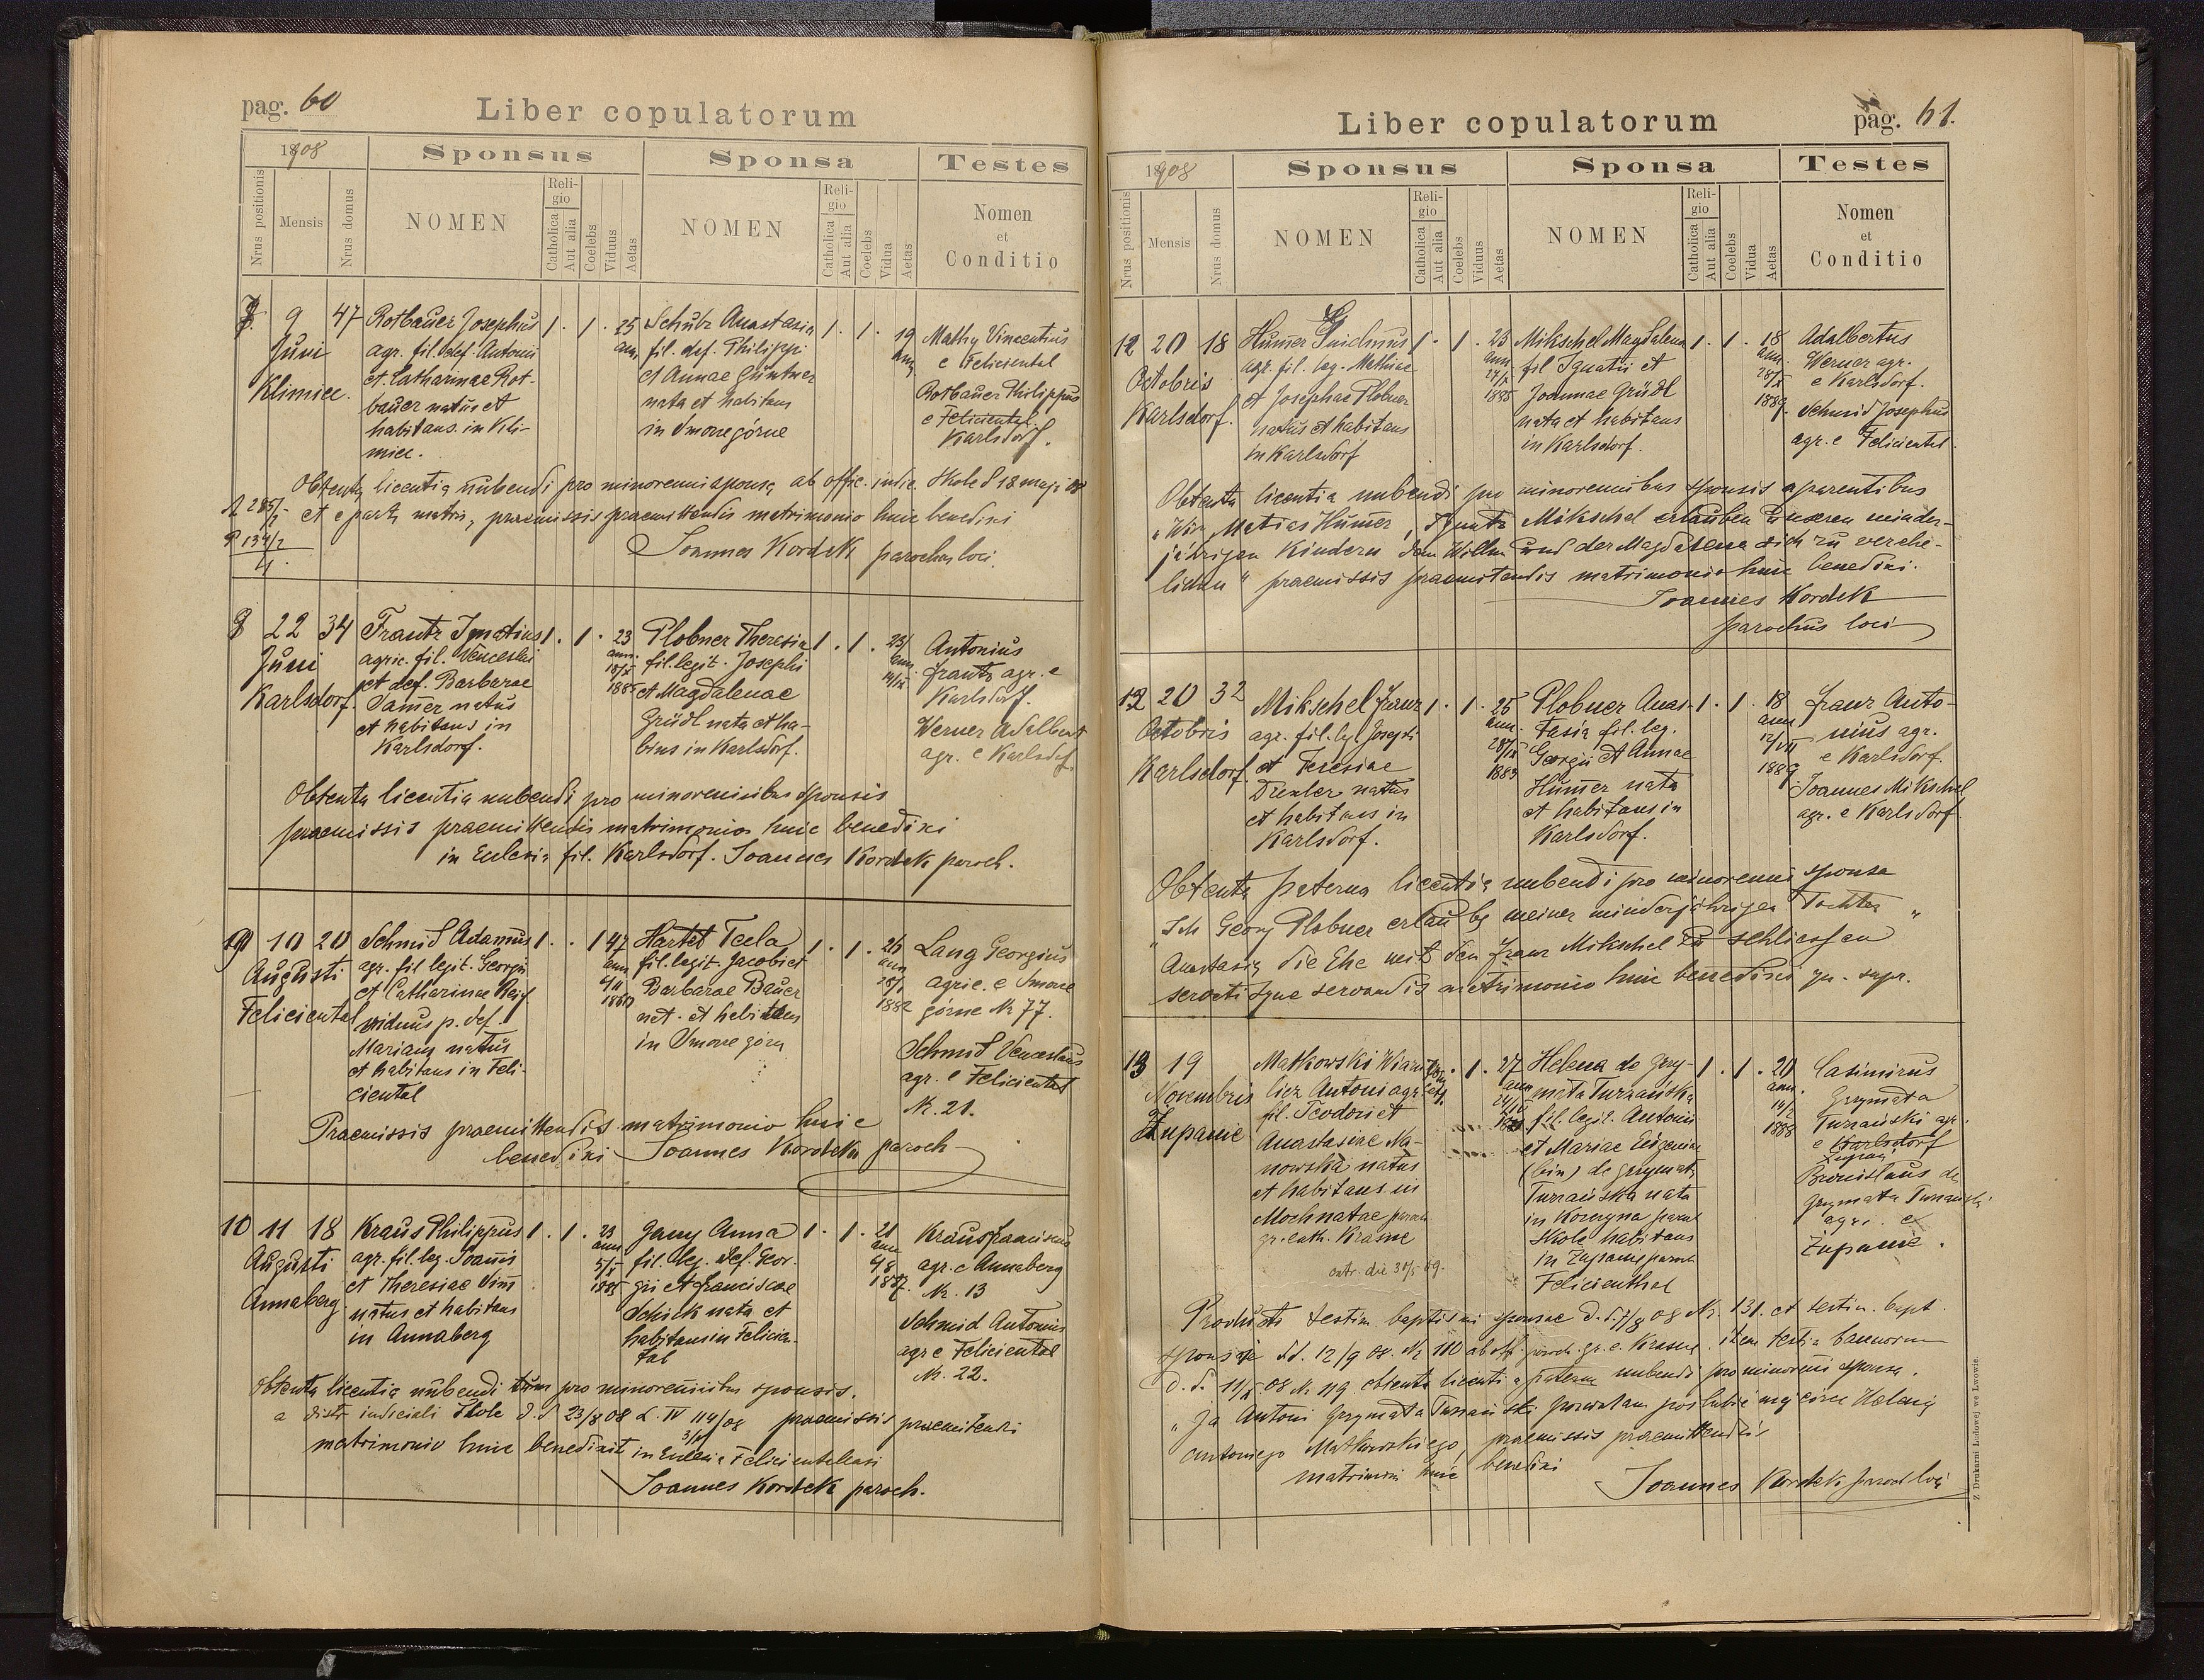 pag. 60
Liber copulatorum
1908
Sponsus
Sponsa
Testes
Nrus positionis
Mensis
Nrus domus
NOMEN
Religio
Catholica
Aut alia
Coelebs
Viduus
Aetas
NOMEN
Religio
Catholica
Aut alia
Coelebs
Vidua
Aetas
Nomen
et
Conditio
7. 9 47
Juni
Klimiec.
Rotbauer Josephus
agr. fil. def. Antonii
et Catharinae Rot-
bauer natus et
habitans in Kli-
miec.
1. 1. 25
ann.
Schubz Anastasia
fil. def. Philippi
et Annae Güntner
nata et habitans
in Smorze górne
1. 1. 19
ann.
Mattig Vincentius
e Feliciental
Rotbauer Philippus
e Feliciental.
Karlsdorf.
Obtenta licentia nubendi pro minorenni sponsa ab offic. indic. Skole d 18 maji 08
et e parte matris, praemissis praemittendis matrimonio huic benedixi
Joannes Kordek parochus loci.
8 22 34
Juni
Karlsdorf.
Frantz Ignatius
agric. fil. Venceslai
et def. Barbarae
Samer natus
et habitans in
Karlsdorf.
1. 1. 23
ann.
18/X
1885
Plobner Theresia
fil. legit. Josephi
et Magdalenae
Grüdl nata et ha-
bins in Karlsdorf.
1. 1. 23/
ann.
Antonius
Frantz agr. e
Karlsdorf.
Werner Adalbert
agr. e Karlsdof.
Obtenta licentia nubendi pro minorenibus sponsis
praemissis praemittendis matrimonio huic benedixi
in Eclesia fil. Karlsdorf. Joannes Kordek paroch.
9 10 20
Augusti
Feliciental
Schmid Adamus
agr. fil legit. Georgii
et Catharinae Reif
viduus p. def.
Mariam natus
et habitans in Feli-
ciental
1. . 1 47
ann.
1860
Hartel Tecla
fil. legit. Jacobi et
Barbarae Bauer
nat. et habitans
in Smorze górn
1. 1. 26
ann
1882
Lang Georgius
agric. e Smorze
górne N 77.
Schmid Venceslaus
agr. e Feliciental
N. 21.
Praemissis praemittendis matrimonio huic
benedixi Joannes Kordek paroch
10 11 18
Augusti
Annaberg
Kraus Philippus
agr. fil. leg. Joannis
et Theresiae
natus et habitans
in Annaberg
1. 1. 23
ann
5/V
1885
Gany Anna
fil. leg. def. Geor-
gii et Franciscae
Schick nata et
habitans in Felicien-
tal
1. 1. 21
ann
1887.
Kraus Franciscus
agr. e Annaberg
N. 13
Schmid Antonius
agr e Feliciental
N. 22.
Obtenta licentia nubendi pro minorenibus sponsis.
a distr iudiciali Skole d.d 23/8 08 L. IV 114/08 praemissis praemitendi
matrimonio huic benedixit in Eclesia Felicientaliensi
Joannes Kordek paroch.
Liber copulatorum
pag. 61.
1908
Sponsus
Sponsa
Testes
Nrus positionis
Mensis
Nrus domus
NOMEN
Religio
Catholica
Aut alia
Coelebs
Viduus
Aetas
NOMEN
Religio
Catholica
Aut alia
Coelebs
Vidua
Aetas
Nomen
et
Conditio
12 20 18
Octobris
Karlsdorf.
Humer
agr. fil. leg. Mathiae
et Josephae Plobner
natus et habitans
in Karlsdorf
1. 1. 23
ann
27/X
1885
Mikschel Magdalena
fil Ignatii et
Joannae Grüdl
nata et habitans
in Karlsdorf.
1. 1. 18
ann.
28/X
1889.
Adalbertus
Werner agr.
e Karlsdorf.
Schmid Josephus
agr. e Feliciental.
Obtenta licentia nubendi pro minorenibus sponsis a parentibus
"Wir Matias Humer, Ignatz Mikschel erlauben unseren minder-
jährigen Kindern dem und der Magdalena sich zu verehe-
lichen" praemissis praemitendis matrimonio huic benedixi.
Joannes Kordek
parochus loci
12 20 32
Octobris
Karlsdorf.
Mikschel Franz
agr. fil. leg. Josephi
et Teresiae
Drexler natus
et habitans in
Karlsdorf.
1. 1. 25
ann.
28/IX
1883
Plobner Anas-
tasia fil. leg.
Georgii et Annae
Humer nata
et habitans in
Karlsdorf.
1. 1. 18
ann
12/VII
1889
Franz Anto-
nius agr.
e Karlsdorf.
Joannes Mikschel
agr. e Karlsdorf
Obtenta paterna licentia nubendi pro minorenni sponsa
"Ich Georg Plobner erlaube meiner minderjährigen Tochter
Anastasia die Ehe mit den Franz Mikschel zu schliessen"
servatisque servandis matrimonio huic benedixi qu. supr.
13 19
Novembris
Zupanie
Matkowski
Antoni agr.
fil. Teodori et
Anastasiae Na-
nowska natus
et habitans in
Mochnatae paroch.
gr. cath. Krasne
1. 27
ann
Helena de Grzy-
mała Turzańska
fil. legit. Antonii
et Mariae Eugeniae
(bin) de Grzymała
Turzańska nata
in Korczyna paroch
Skole habitans
in Zupanie paroch
Felicienthal
1. 1. 20
ann.
14/2
1888
Casimirus
Grzymała
Turzański agr.
e Karlsdorf
Zupanie
Bronislaus de
Grzymała Turzański
agr. e
Zupanie.
Produxit testim baptismi sponsae d.d. 7/8 08 N. 131. et testim. bapt.
sponsi d.d. 12/9 08. N 110 ab off. paroch. gr. c. Krasne. item testim bannorum
d.d. 11/X 08 N 119. obtenta licentia paterna nubendi pro minorenni sponsa.
"Ja Antoni Grzymała Turzański pozwalam poślubić mej córce Helenie
Antoniego Matkowskiego, praemissis praemittendis
matrimoni huic benedixi
Joannes Kordek paroch loci
Z Drukarni Ludowej we Lwowie.